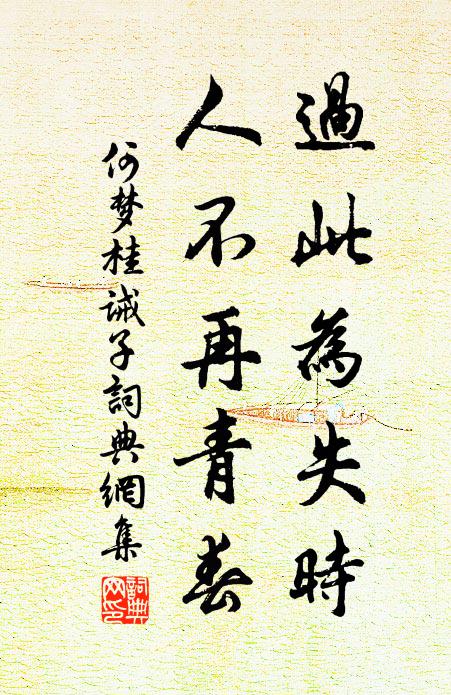 過此為失時
人不再青春
何梦桂诫子詞典網集
詞典
网印